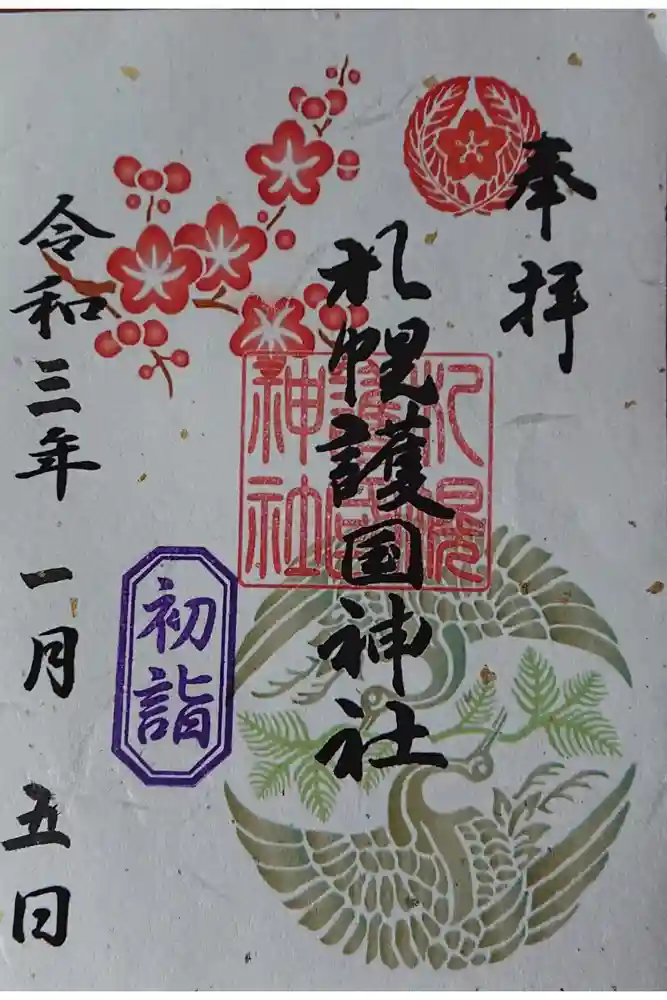 奉拝
札幌護国神社
札幌護國神社
初詣
令和三年一月五日